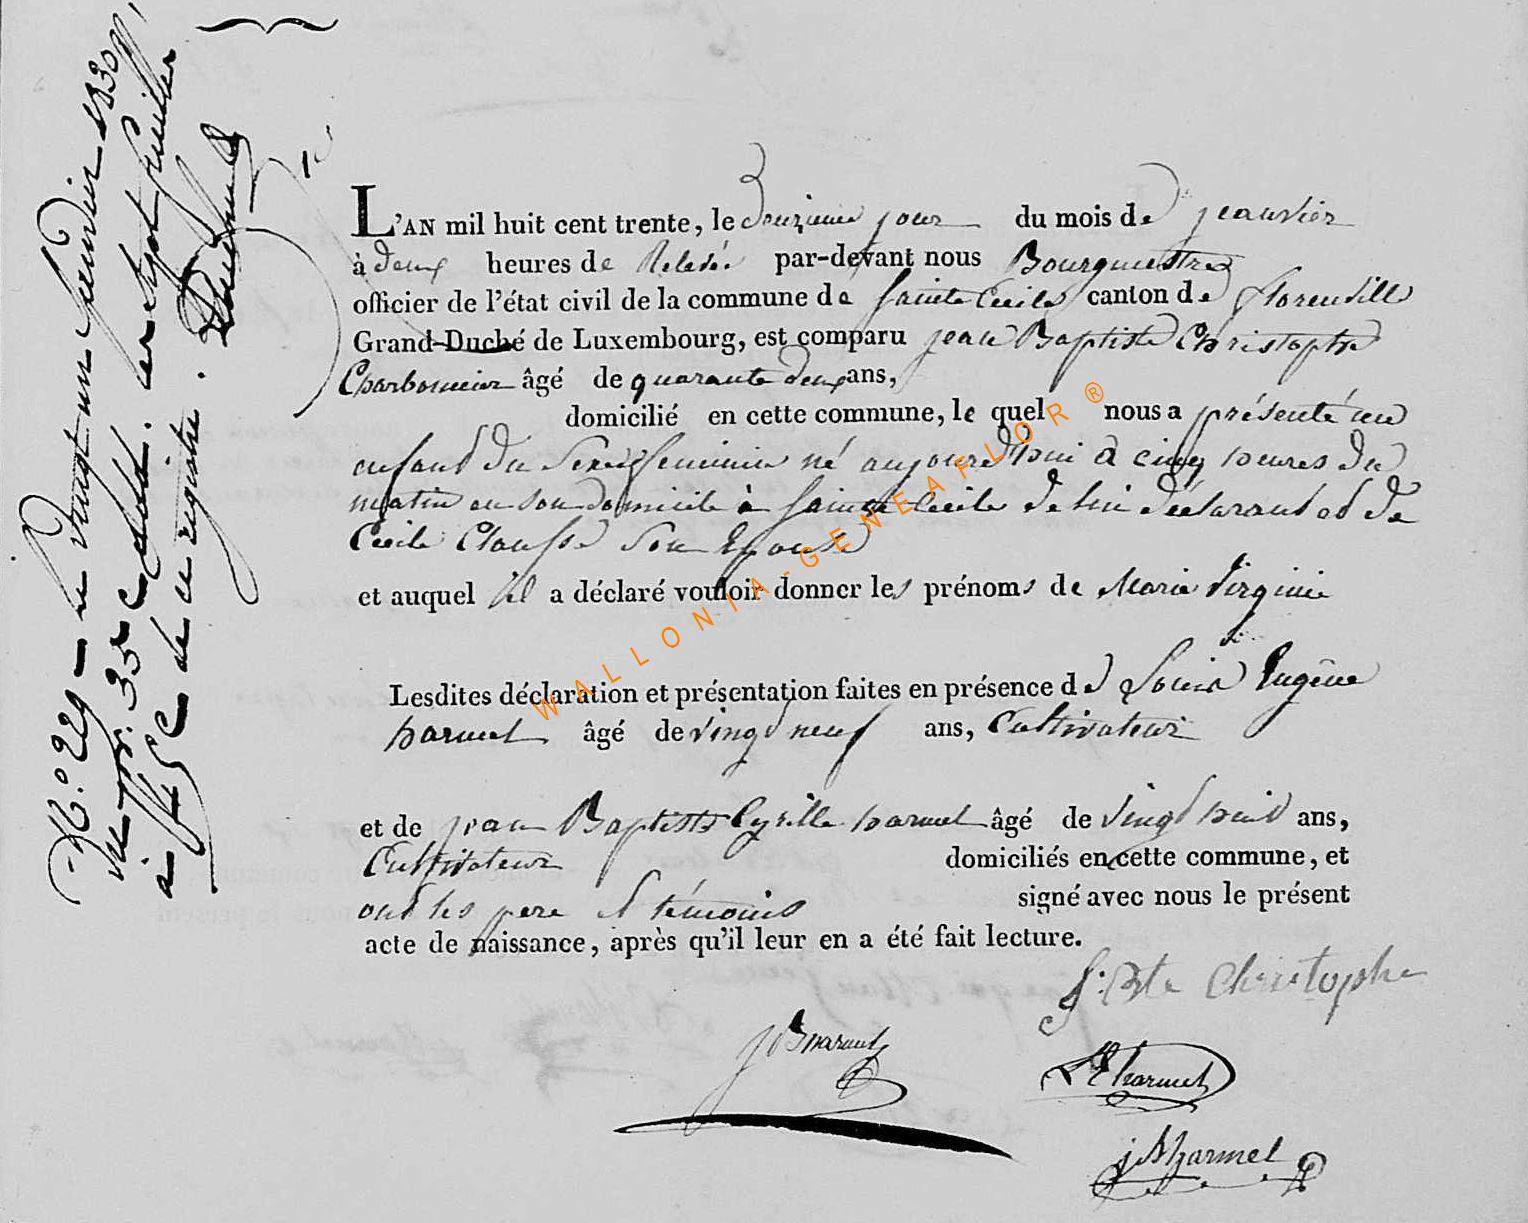 N.º 229 — Le vingt un janvier 1830
à
de ce registre.
L'AN mil huit cent trente, le douzieme jour du mois de jeanvier
à deux heures de Relevée par-devant nous Bourgmestre
officier de l'état civil de la commune de Sainte Cecile canton de florenville
Grand-Duché de Luxembourg, est comparu jean Baptiste Christophe
Charbonnier âgé de quarante deux ans,
domicilié en cette commune, le quel nous a présenté un
enfant du Sexe feminin né aujourd'hui à cinq heures du
matin en son domicile à Sainte Cecile de lui déclarant et de
Cécile Clausse Son Epouse
et auquel il a déclaré vouloir donner les prénoms de Marie Virginie
Lesdites déclaration et présentation faites en présence de Louis Eugêne
harmel âgé de vingt neuf ans, Cultivateur
et de jean Baptiste Cyrille harmel âgé de vingt huit ans,
Cultivateur domiciliés en cette commune, et
ont les pere et témoins signé avec nous le présent
acte de naissance, après qu'il leur en a été fait lecture.
J. Bte Christophe
LE harmel
jB harmel
WALLONIA-GENEAFLOR ®